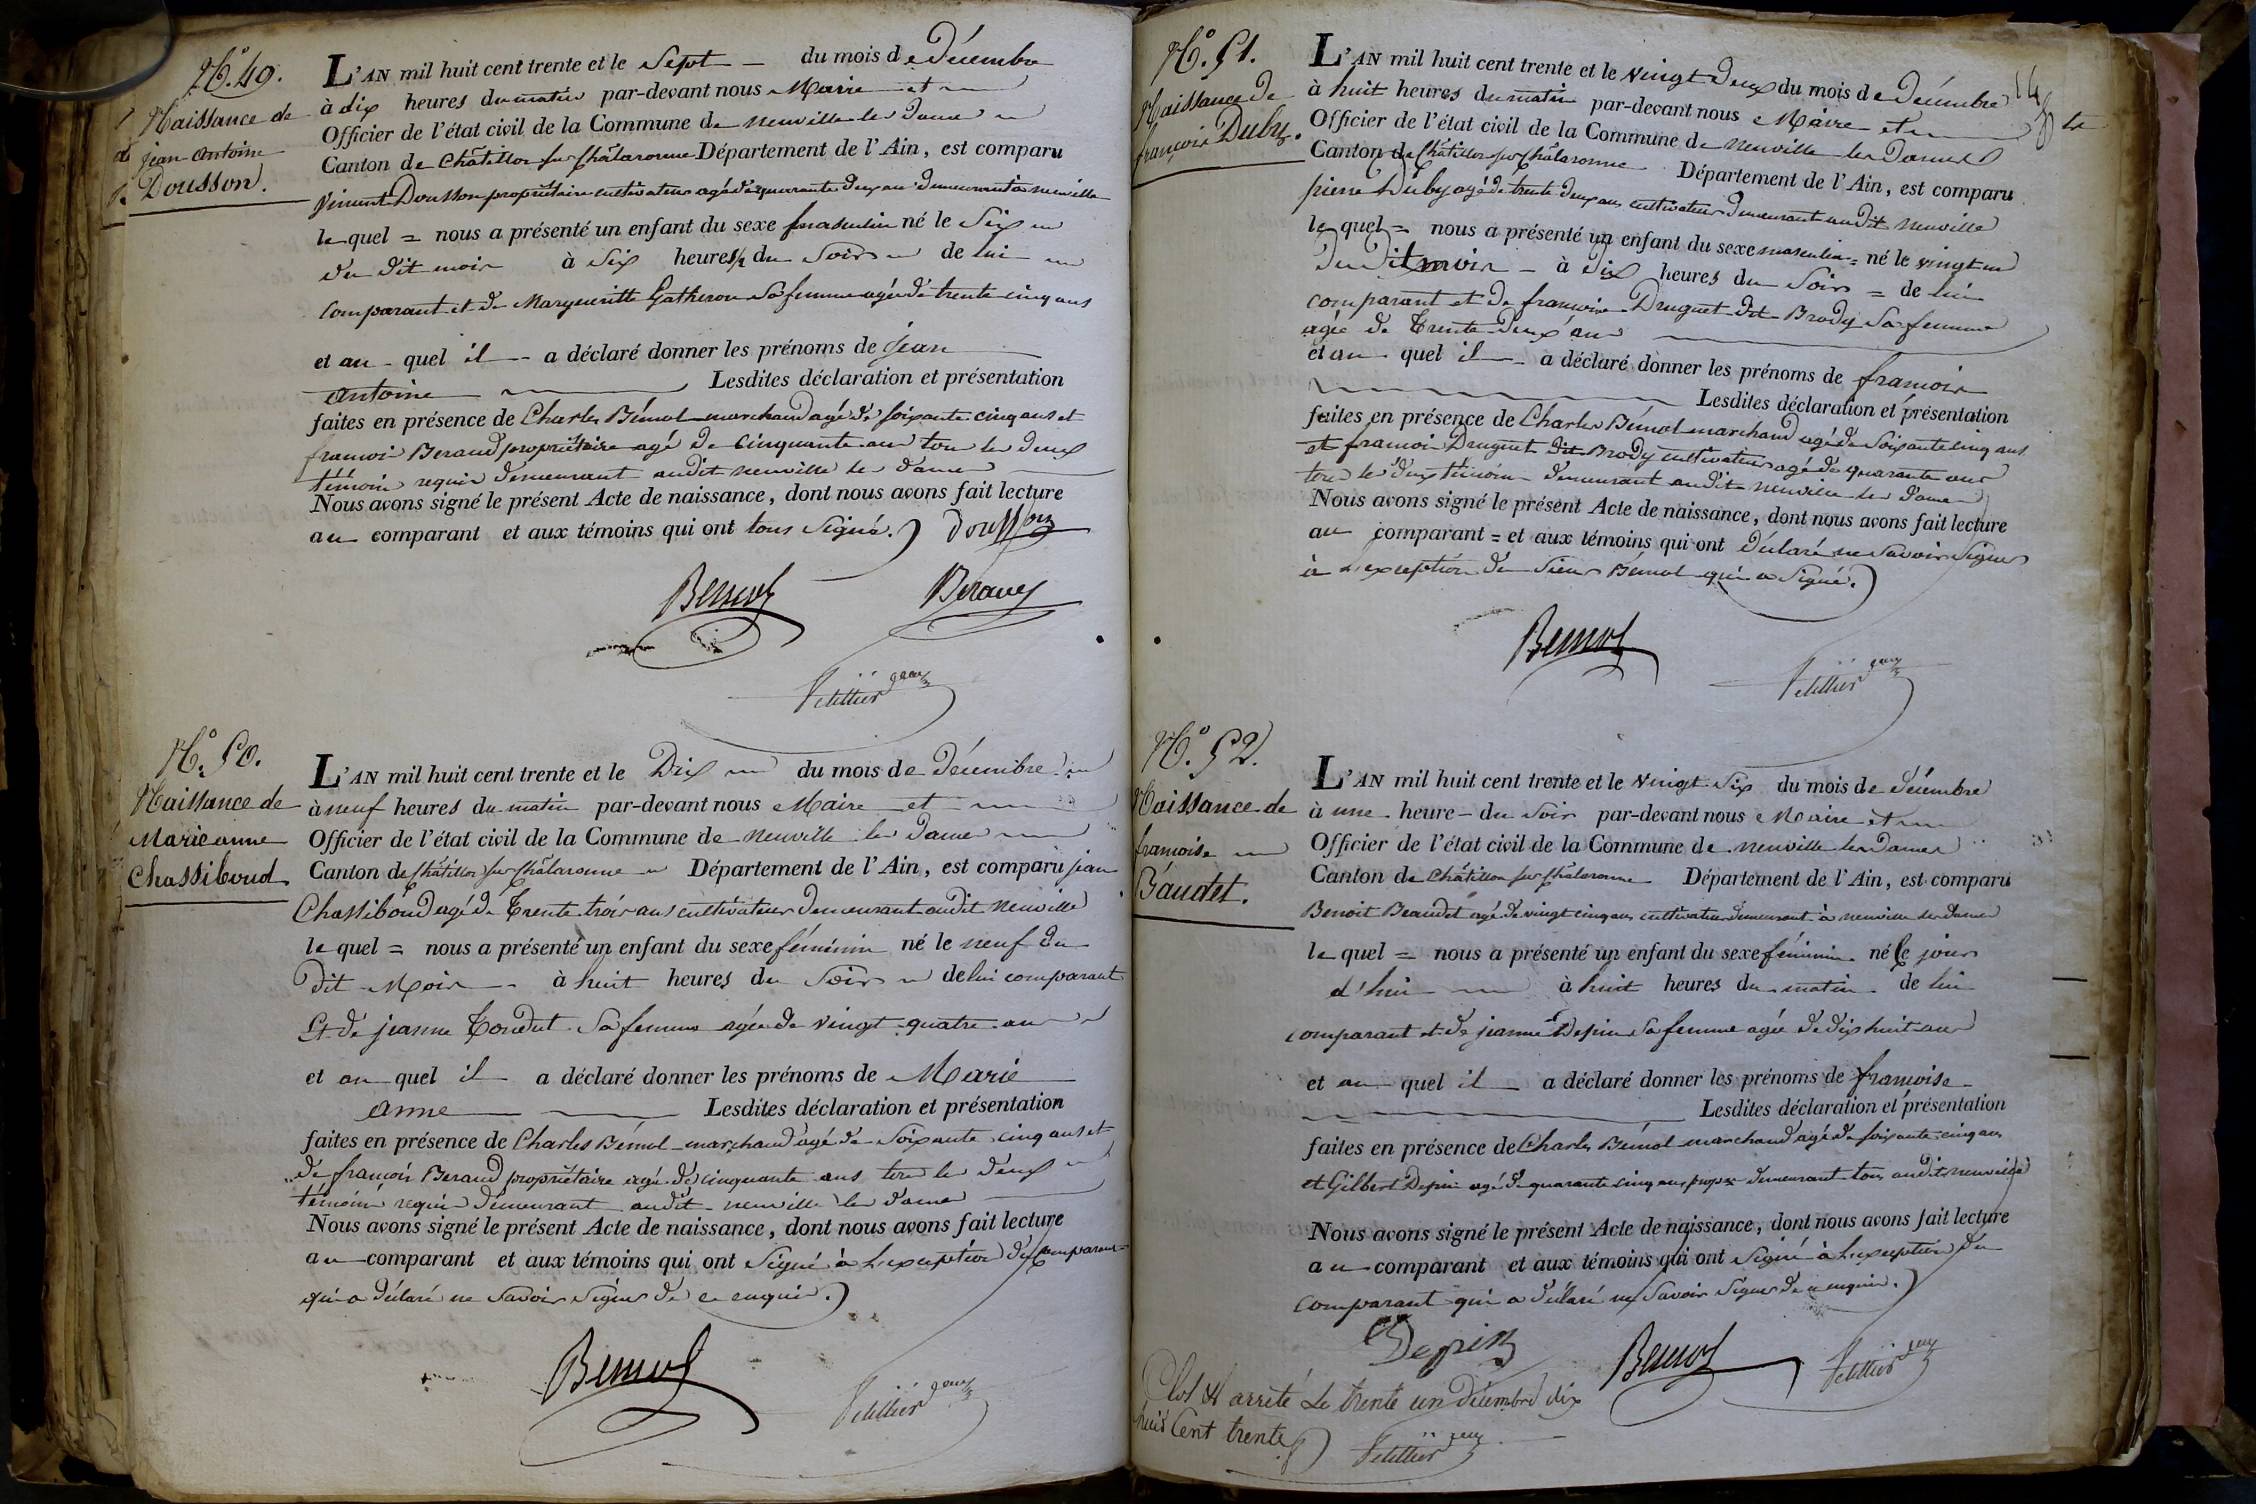 N.o 49.
Naissance de
jean Antoine
Dousson.
L'AN mil huit cent trente et le Sept du mois de Décembre
à dix heures du matin par-devant nous Maire et
Officier de l'état civil de la Commune de neuville les Dames
Canton de Châtillon sur Châlaronne Département de l'Ain, est comparu
Vincent Dousson propriétaire cultivateur agé de quarante deux ans demeurant à neuville
lequel = nous a présenté un enfant du sexe masculin né le Six
du dit mois à Six heures 1/2 du Soir de lui
comparant et de Margueritte Gatheron Sa femme agée de trente cinq ans
et au quel il a déclaré donner les prénoms de jean
Antoine Lesdites déclaration et présentation
faites en présence de Charles Bémol marchand agé de soixante cinq ans et
francois Beraud propriétaire agé de cinquante ans tous les deux
témoins requis demeurant audit neuville les dames
Nous avons signé le présent Acte de naissance, dont nous avons fait lecture
au comparant et aux témoins qui ont tous Signé. Dousson
Bemol Beraud
Pelletier
N.o 50.
Naissance de
Marie anne
Chassiboud
L'AN mil huit cent trente et le Dix du mois de Décembre
à neuf heures du matin par-devant nous Maire et
Officier de l'état civil de la Commune de neuville les Dames
Canton de Châtillon sur Châlaronne Département de l'Ain, est comparu jean
Chassiboud agé de Trente trois ans cultivateur demeurant audit Neuville
lequel = nous a présenté un enfant du sexe féminin né le neuf du
dit Mois à huit heures du Soir de lui comparant
Et de jeanne Condut Sa femme agée de vingt quatre ans
et au quel il a déclaré donner les prénoms de Marie
anne Lesdites déclaration et présentation
faites en présence de Charles Bémol marchand agé de Soixante cinq ans et
de françois Beraud propriétaire agé de cinquante ans tous les deux
témoins requis demeurant audit neuville les dames
Nous avons signé le présent Acte de naissance, dont nous avons fait lecture
au comparant et aux témoins qui ont Signé à l'exception du comparant
qui a déclaré ne Savoir Signer de ce enquis.
Bemol Pelletier
N.o 51.
Naissance de
françois Duby.
L'AN mil huit cent trente et le vingt deux du mois de Décembre
à huit heures du matin par-devant nous Maire et
Officier de l'état civil de la Commune de neuville les Dames
Canton de Châtillon sur Châlaronne Département de l'Ain, est comparu
pierre Duby agé de trente deux ans cultivateur demeurant audit Neuville
lequel = nous a présenté un enfant du sexe masculin = né le vingt un
du dit mois à dix heures du Soir = de lui
comparant et de francoise Druguet dit Brody Sa femme
agée de Trente deux ans
et au quel il a déclaré donner les prénoms de francois
Lesdites déclaration et présentation
faites en présence de Charles Bémol marchand agé de Soixante cinq ans
et francois Druguet dit Brody cultivateur agé de quarante ans
tous les deux témoins demeurant audit neuville les dames
Nous avons signé le présent Acte de naissance, dont nous avons fait lecture
au comparant = et aux témoins qui ont déclaré ne Savoir Signer
à l'exception du Sieur Bémol qui a Signé.
Bemol
Pelletier
N.o 52.
Naissance de
francoise
Baudet.
L'AN mil huit cent trente et le vingt Six du mois de Décembre
à une heure du Soir par-devant nous Maire et
Officier de l'état civil de la Commune de neuville les Dames
Canton de Châtillon sur Châlaronne Département de l'Ain, est comparu
Benoit Beaudet agé de vingt cinq ans cultivateur demeurant à neuville les Dames
lequel = nous a présenté un enfant du sexe féminin né le jour
d'hui à huit heures du matin de lui
comparant et de jeanne Depin Sa femme agée de dix huit ans
et au quel il a déclaré donner les prénoms de francoise
Lesdites déclaration et présentation
faites en présence de Charles Bémol marchand agé de soixante cinq ans
et Gilbert Depin agé de quarante cinq ans demeurant tous audit neuville
Nous avons signé le présent Acte de naissance, dont nous avons fait lecture
au comparant et aux témoins qui ont Signé à l'exception du
comparant qui a déclaré ne Savoir Signer de ce enquis.
Depin Bemol Pelletier
Clos et arreté Le trente un Décembre dix
huit Cent trente Pelletier